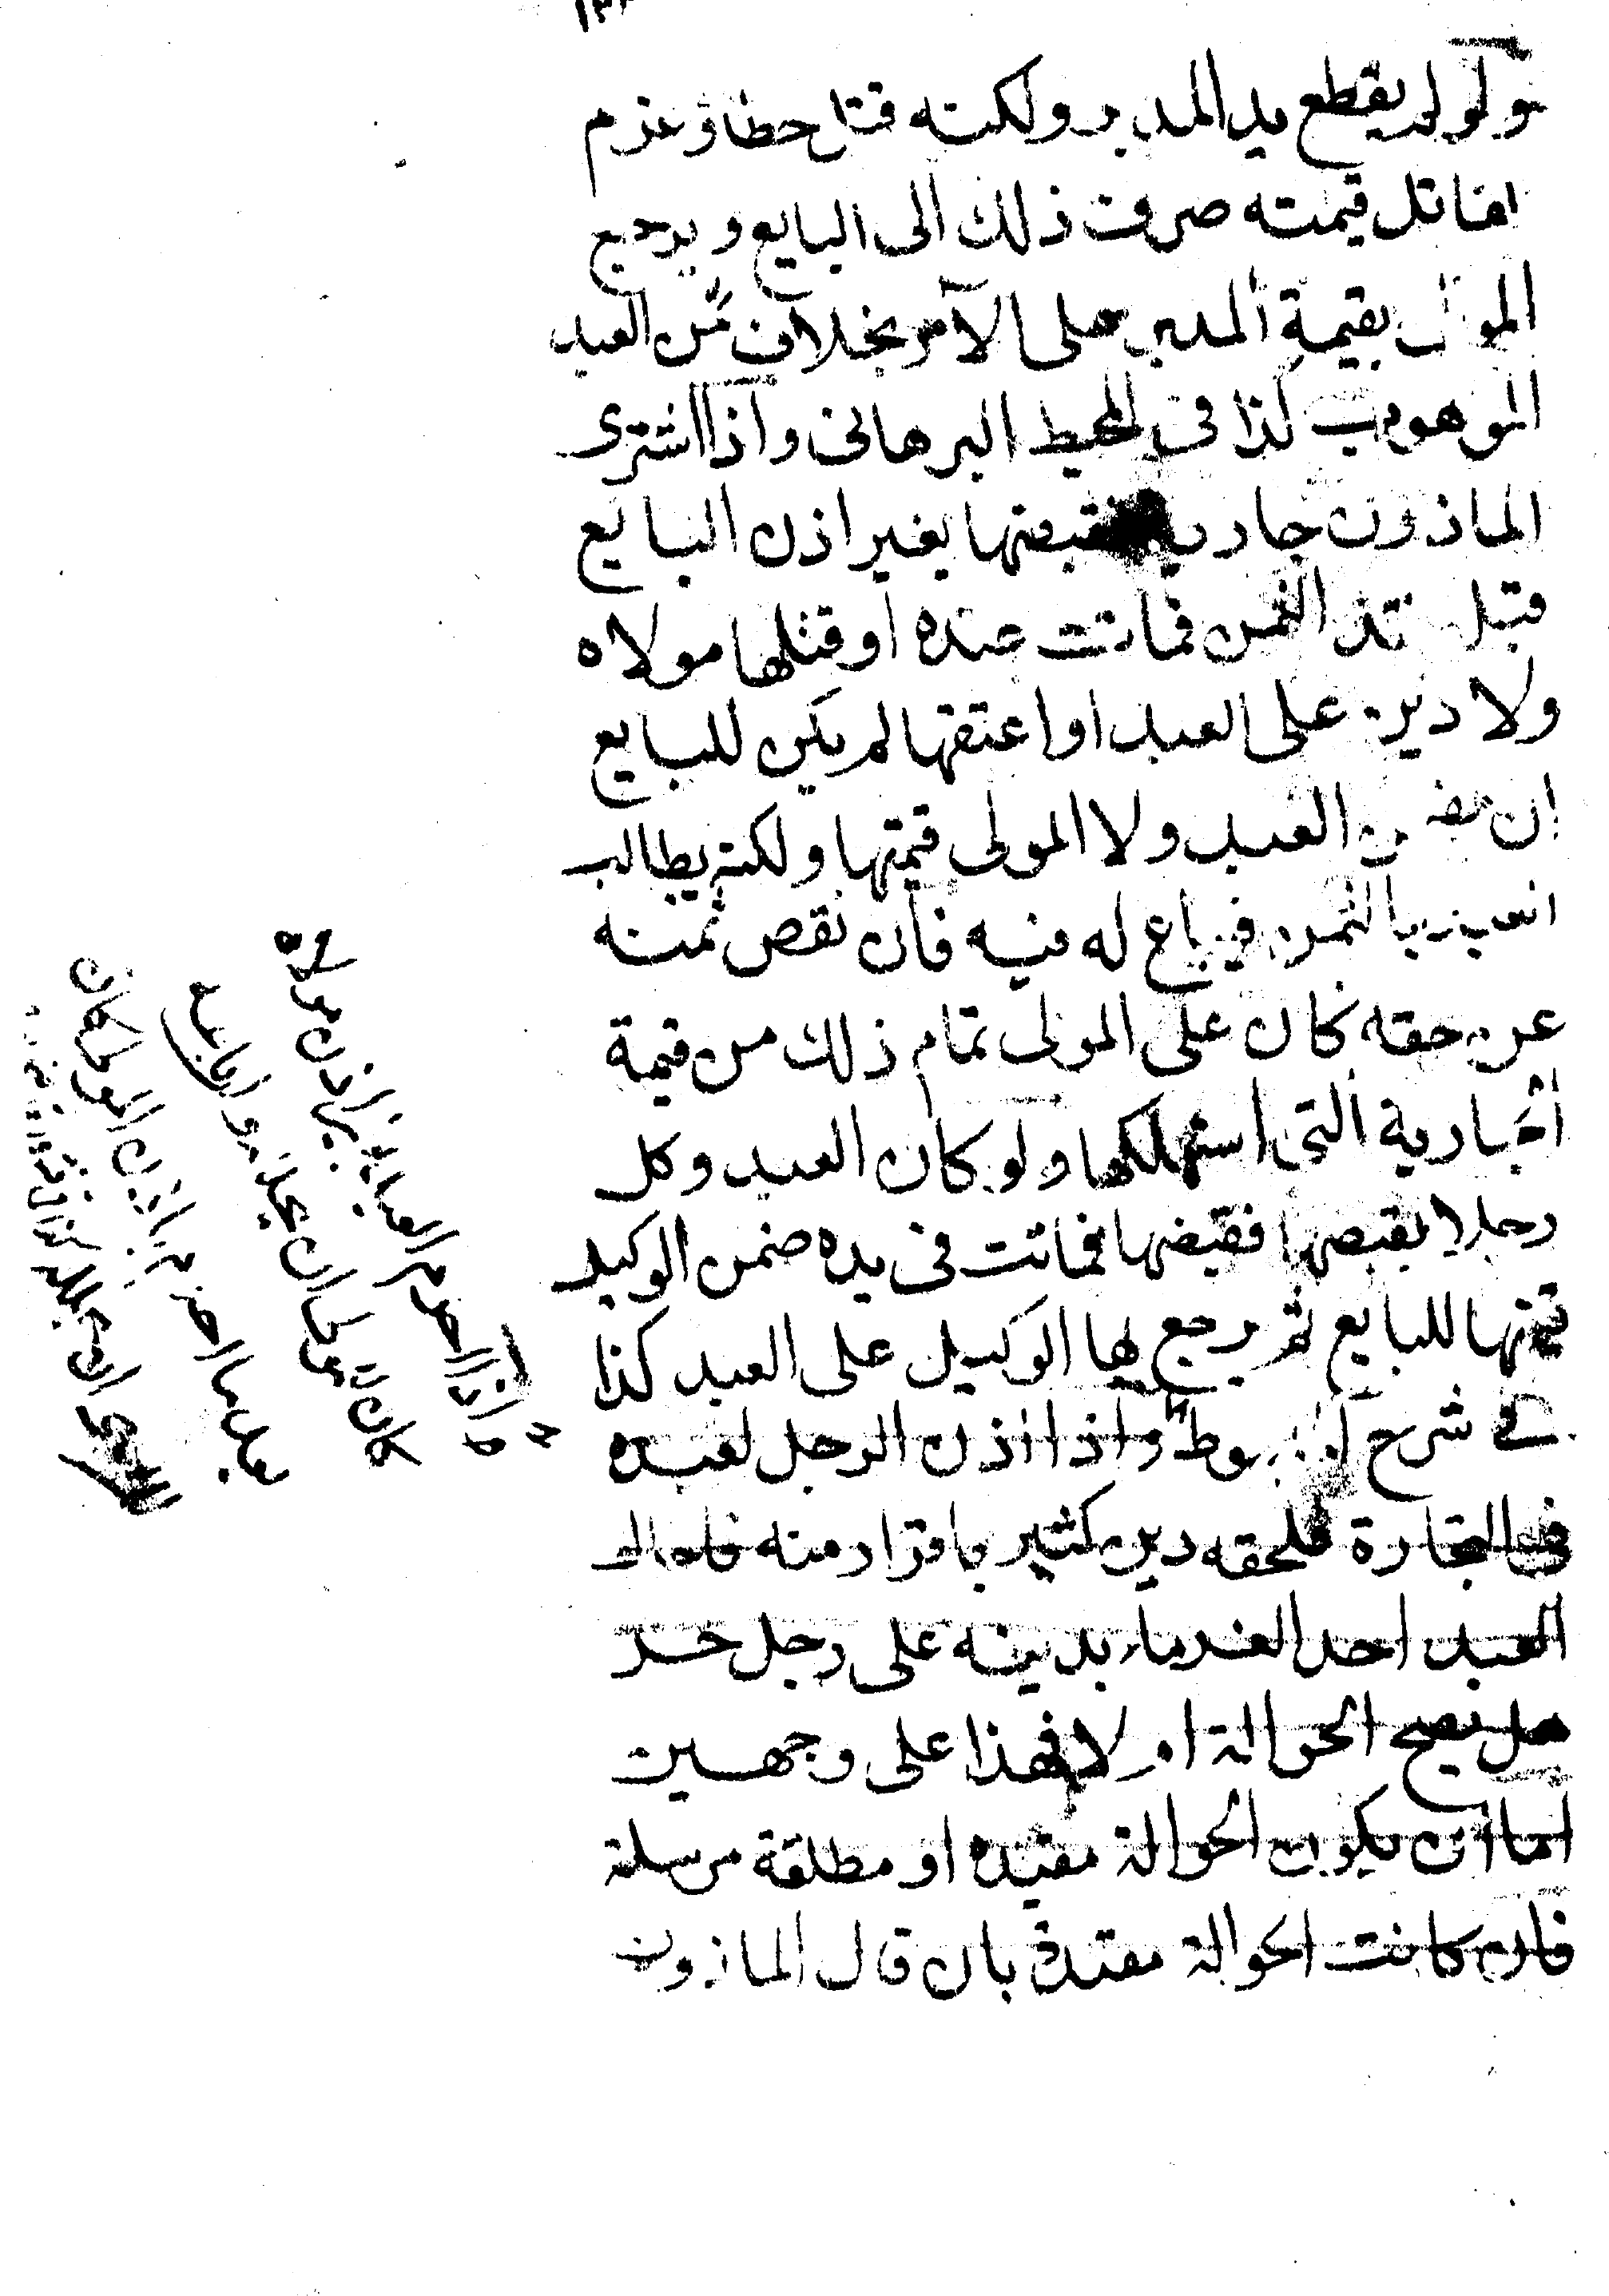 ولو لم يقطع يد المدبر ولكنه قتل خطاء وغرم
القاتل قيمته صرف ذلك الى البايع ويرجع
المولى بقيمة المدبر على الآمر بخلاف ثمن العبد
الموهوب كذا فى المحيط البرهانى واذا اشترى
الماذون جارية فقبضها بغير اذن البايع
قبل نقد الثمن فماتت عنده او قتلها مولاه
ولا دين على العبد او اعتقها لم يكن للبايع
ان يضمن العبد ولا المولى قيمتها ولكنه يطالب
العبد بالثمن فيباع له فيه فان نقص ثمنه
عن حقه كان على المولى تمام ذلك من قيمة
الجارية التى استهلكها ولو كان العبد وكل
رجلا بقبضها فقبضها فماتت فى يده ضمن الوكيل
قيمتها للبايع ثم يرجع بها الوكيل على العبد كذا
فى شرح المبسوط واذا اذن الرجل لعبده
فى التجارة فلحقه دين كثير باقرار منه فاحال
العبد احد الغرماء بدينه على رجل حر
هل يصح الحوالة ام لا فهذا على وجهين
اما ان يكون الحوالة مقيدة او مطلقة مرسلة
فان كانت الحوالة مقيدة بان قال الماذون